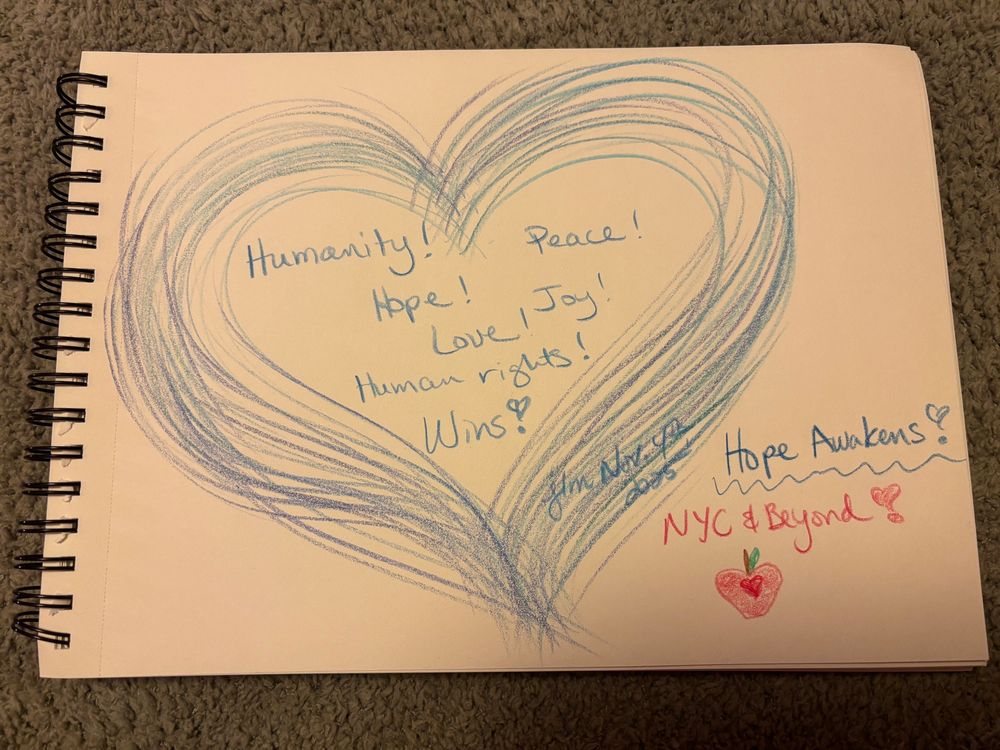 Humanity! Peace!
Hope! Joy!
Love!
Human rights!
Wins!
Nov. 4th
2025
Hope Awakens!
NYC & Beyond!